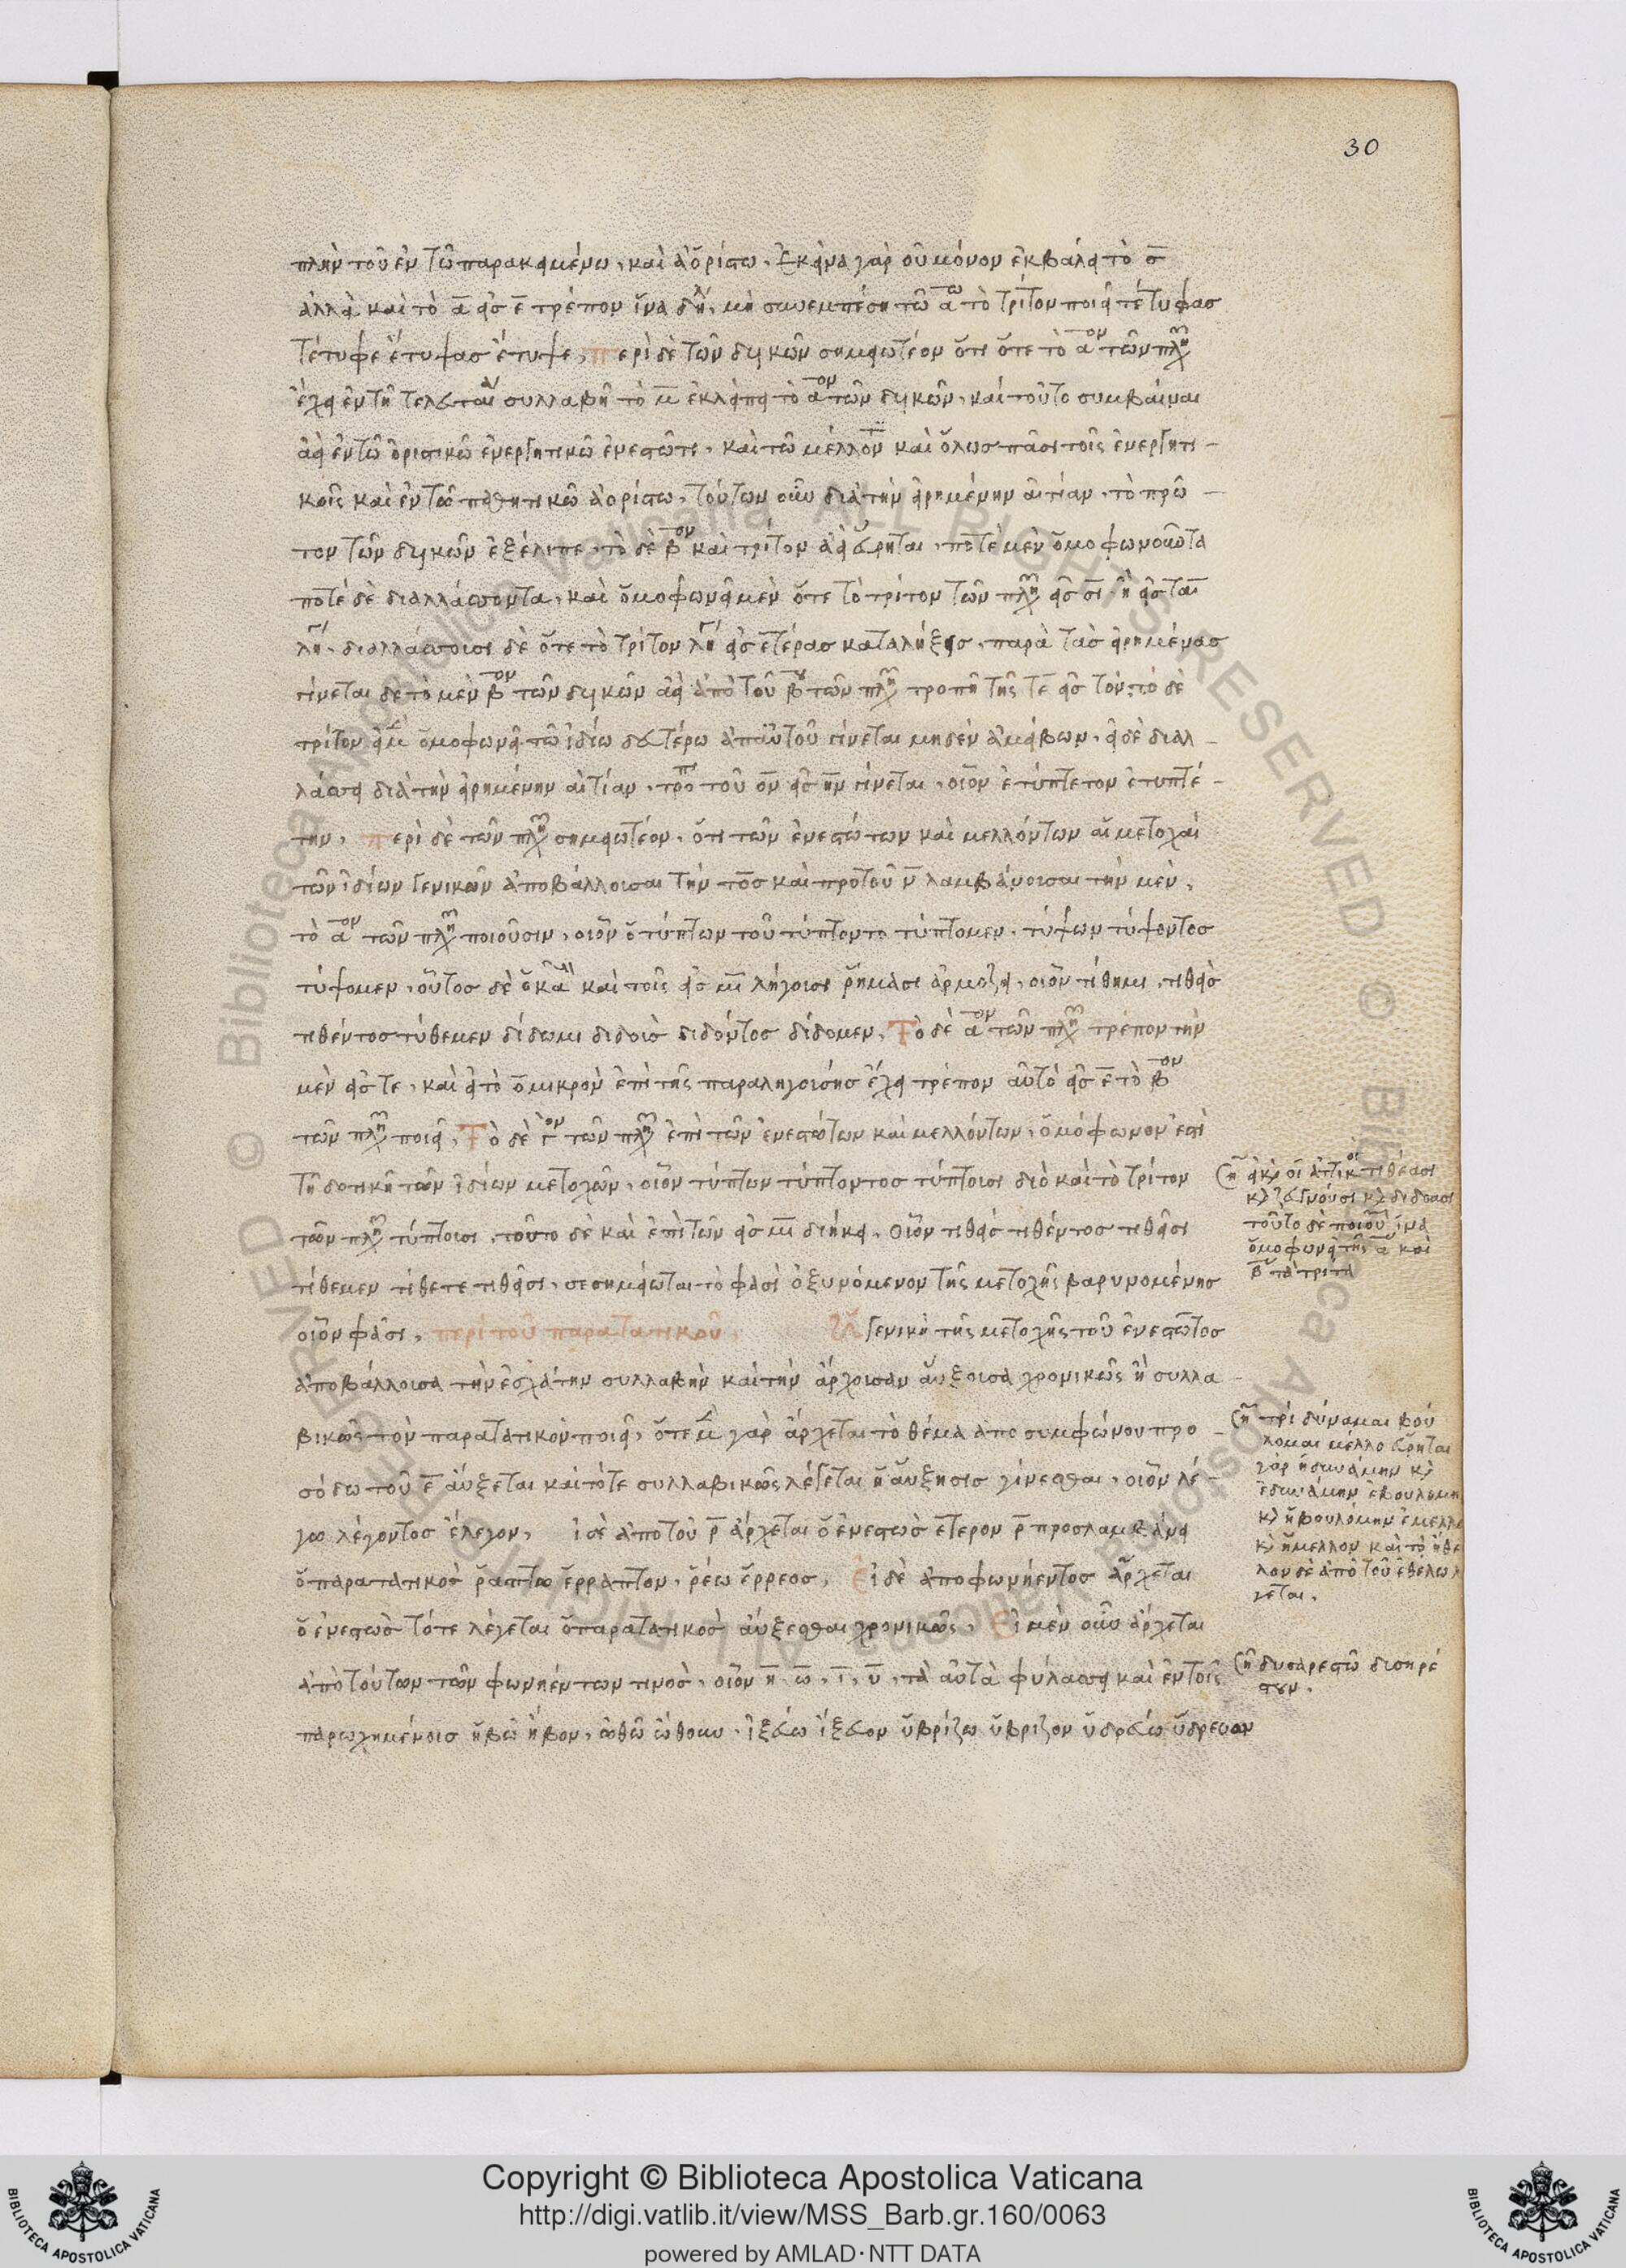 30
πλὴν τοῦ ἐν τῶ παρακειμένω, καὶ ἀορίστω. ἐκεῖνα γὰρ οὐ μόνον ἐκβάλει τὸ σ̅
ἀλλὰ καὶ τὸ α̅ εἰς ε̅ τρέπον ἵνα δηλ, μὴ συνεμπέση τῶ α̅ω τὸ τρίτον ποιεῖ τέτυφασ
τέτυφε ἔτυψασ ἔτυψε, περὶ δὲ τῶν δυϊκῶν σημειωτέον ὅτι ὅτε τὸ α̅ον τῶν πλη
ἔχει ἐν τῆ τελευταία συλλαβῆ τὸ μ̅ ἐκλείπει τὸ α̅ον τῶν δυϊκῶν, καὶ τοῦτο συμβαίνει
ἀεὶ ἐν τῶ ὁριστικῶ ἐνεργητικῶ ἐνεστῶτι, καὶ τῶ μέλλον καὶ ὅλωσ πᾶσι τοῖς ἐνεργητι-
κοῖς καὶ ἐν τῶ παθητικῶ ἀορίστω, τούτων οὖν διὰ τὴν εἰρημένην αἰτίαν, τὸ πρῶ-
τον τῶν δυϊκῶν ἐξέλιπε, τὸ δὲ β̅ον καὶ τρίτον ἀεὶ εὕρηται, ποτὲ μὲν ὁμοφωνοῦντα
ποτὲ δὲ διαλλάσσοντα, καὶ ὁμοφωνεῖ μὲν ὅτε τὸ τρίτον τῶν πλη εἰς σι̅ ἢ εἰς ται̅
λήγ, διαλλάσσουσι δὲ ὅτε τὸ τρίτον λήγ εἰς ἑτέρασ καταλήξεισ, παρὰ τὰσ εἰρημένασ
γίνεται δὲ τὸ μὲν β̅ον τῶν δυϊκῶν ἀεὶ ἀπὸ τοῦ β̅ου τῶν πλη τροπῆ τῆς τε̅ εἰς τον, τὸ δὲ
τρίτον εἰ μὲν ὁμοφωνεῖ τῶ ἰδίω δευτέρω ἀπ' αὐτοῦ γίνεται μηδὲν ἀμείβων, εἰ δὲ διαλ-
λάσσει διὰ τὴν εἰρημένην αἰτίαν, τροπ τοῦ ον̅ εἰς ην̅ γίνεται, οἷον ἐτύπτετον ἐτυπτέ-
την, περὶ δὲ τῶν πλη σημειωτέον, ὅτι τῶν ἐνεστώτων καὶ μελλόντων αἱ μετοχαὶ
τῶν ἰδίων γενικῶν ἀποβάλλουσαι τὴν τοσ καὶ πρὸ τοῦ ν̅ λαμβάνουσαι τὴν μεν,
τὸ α̅ον τῶν πλη ποιοῦσιν, οἷον ὁ τύπτων τοῦ τύπτοντο τύπτομεν, τύψων τύψοντοσ
τύψομεν, οὗτοσ δὲ ὁ κα καὶ τοῖς εἰς μι̅ λήγουσι ῥήμασι ἁρμόζει, οἷον τίθημι, τιθεὶσ
τιθέντοσ τύθεμεν δίδωμι διδοὺσ διδόντοσ δίδομεν, Τὸ δὲ α̅ον τῶν πλη τρέπον τὴν
μὲν εἰς τε, καὶ εἰ τὸ ὂμικρὸν ἐπὶ τῆς παραληγούσησ ἔχει τρέπον αὐτὸ εἰς ε̅ τὸ β̅ον
τῶν πλη ποιεῖ, Τὸ δὲ γ̅ον τῶν πλη ἐπὶ τῶν ἐνεστώτων καὶ μελλόντων, ὁμόφωνον ἐστὶ
τῆ δοτικῆ τῶν ἰδίων μετοχῶν, οἷον τύπτων τύπτοντοσ τύπτουσι διὸ καὶ τὸ τρίτον
τῶν πλη τύπτουσι, τοῦτο δὲ καὶ ἐπὶ τῶν εἰς μι̅ διήκει, οἷον τιθεὶσ τιθέντοσ τιθεῖσι
τίθεμεν τίθετε τιθεῖσι, σεσημείωται τὸ φασὶ ὀξυνόμενον τῆς μετοχῆς βαρυνομένησ
οἷον φᾶσι, περὶ τοῦ παρατατικοῦ, Ἡ γενικὴ τῆς μετοχῆς τοῦ ἐνεστῶτοσ
ἀποβάλλουσα τὴν ἐσχάτην συλλαβὴν καὶ τὴν ἄρχουσαν αὔξουσα χρονικῶς ἢ συλλα-
βικῶς τὸν παρατατικὸν ποιεῖ, ὅτε μὲν γὰρ ἄρχεται τὸ θέμα ἀπο συμφώνου προ-
σόδω τοῦ ε̅ αὔξεται καὶ τότε συλλαβικῶς λέγεται ἡ αὔξησισ γίνεσθαι, οἷον λέ-
γω λέγοντοσ ἔλεγον, ἱ δὲ ἀπο τοῦ ρ̅ ἄρχεται ὁ ἐνεστὼσ ἕτερον ρ̅ προσλαμβάνει
ὁ παρατατικὸσ ῥάπτω ἔρραπτον, ῥέω ἔρρεοσ, Εἰ δὲ ἀπο φωνήεντοσ ἄρχεται
ὁ ἐνεστὼσ τότε λέγεται ὁ παρατατικὸσ αὔξεσθαι χρονικῶς, Εἰ μὲν οὖν ἄρχεται
ἀπὸ τούτων τῶν φωνηέντων τινοσ, οἷον η̅ ω̅, ι̅, υ̅, τὰ αὐτὰ φύλασσει καὶ ἐν τοῖς
παρωχημένοισ ἡβῶ ἥβον, ὠθῶ ὤθουν, ἰξεύω ἴξευον ὑβρίζω ὕβριζον ὑδρεύω ὕδρευον
τιθέασι
διδοασι
τοῦτο δὲ ποιοῦ ἵνα
ὁμοφωνεῖ τῆς α̅ καὶ
β̅ τὰ τρίτα
τρὶ δύναμαι βού
λομαι μέλλο εὕρηται
γὰρ ἠδυνάμην κὶ
ἐδυνάμην ἐβουλομη
κὶ ἠβουλόμην ἔμελλ
κὶ ἤμελλον καὶ τὸ ἤθε
λον δὲ ἀπὸ τοῦ ἐθέλω
γεται.
δυσαρεστῶ δισηρέ
στουν.
Copyright © Biblioteca Apostolica Vaticana
http://digi.vatlib.it/view/MSS_Barb.gr.160/0063
powered by AMLAD·NTT DATA